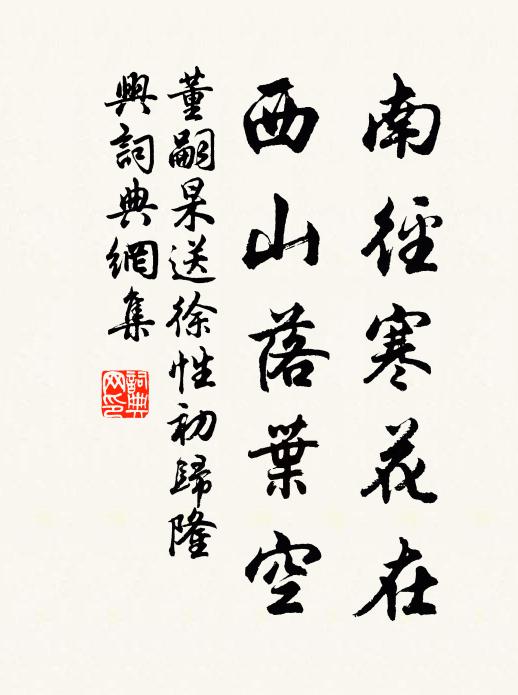 南徑寒花在
西山落葉空
董嗣杲送徐性初歸隆
興詞典網集
詞典
网印